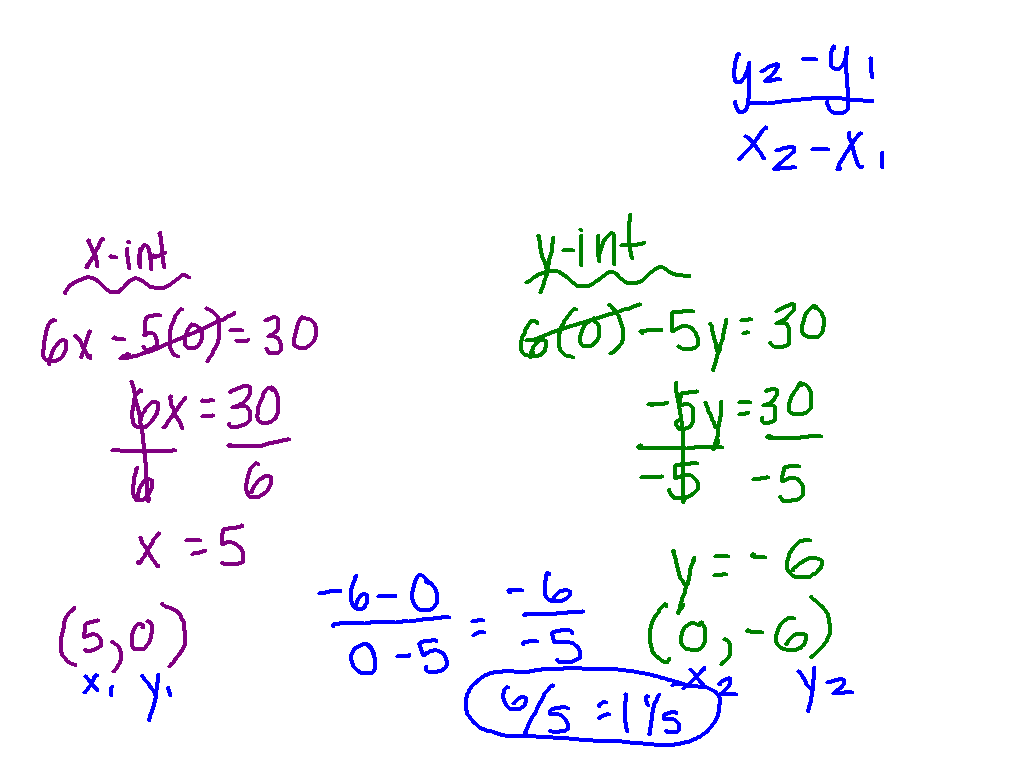 y₂ - y₁
x₂ - x₁
x-int
6x - 5(0) = 30
6x = 30
6 6
x = 5
(5, 0)
x₁ y₁
y-int
6(0) - 5y = 30
-5y = 30
-5 -5
y = -6
(0, -6)
x₂ y₂
-6 - 0 = -6
0 - 5 -5
6/5 = 1 1/5